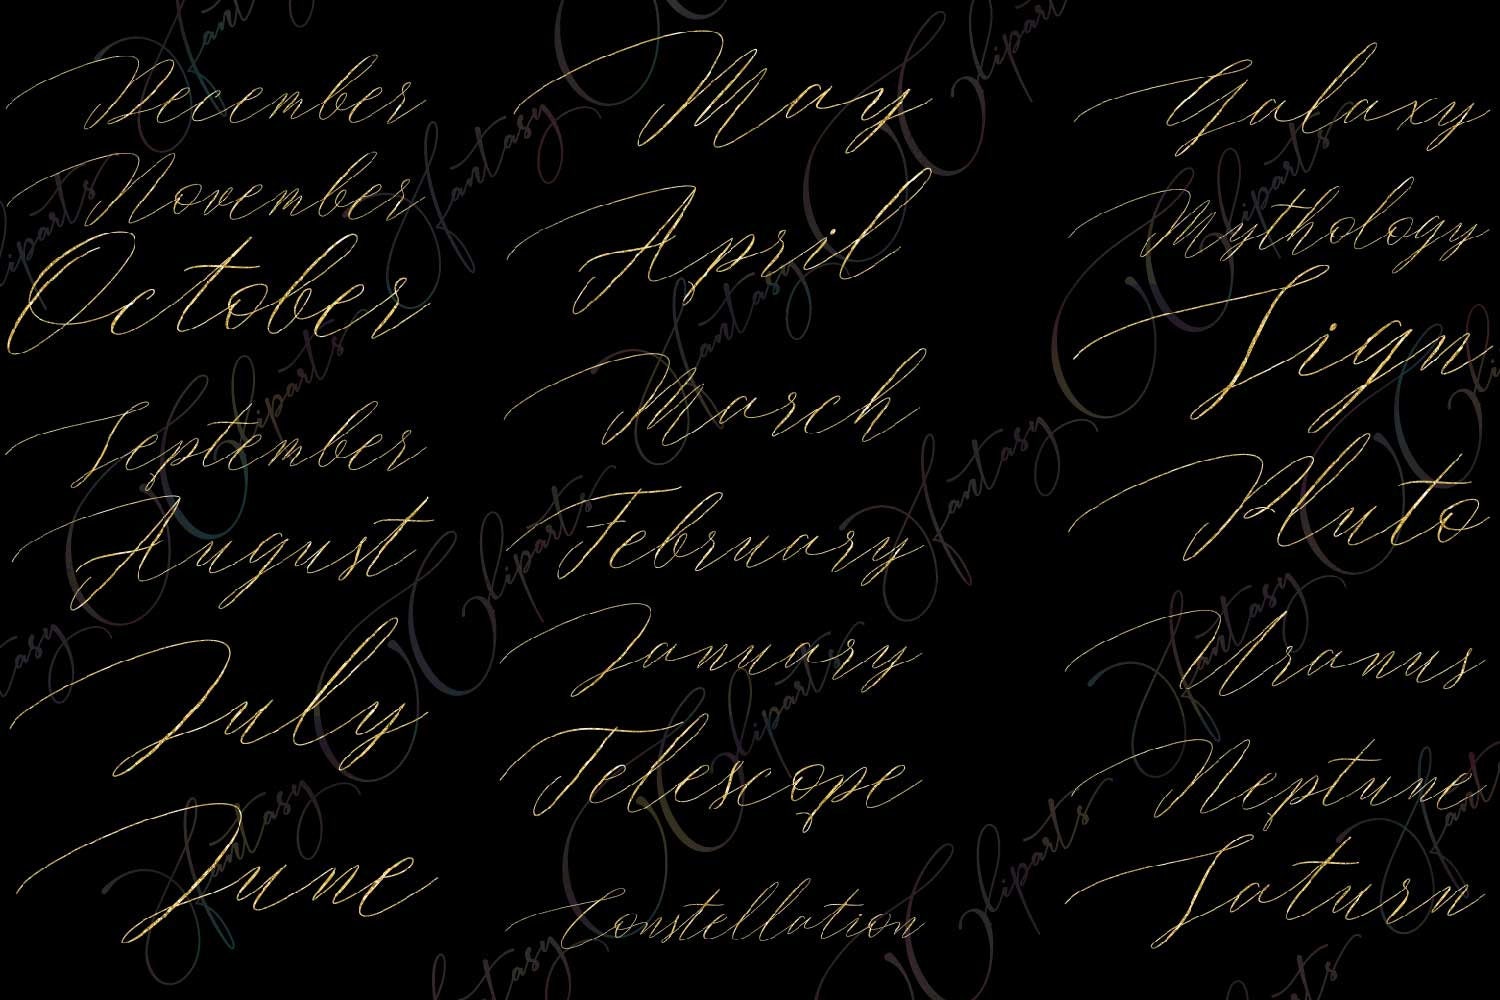 December
November
October
September
August
July
June
May
April
March
February
January
Telescope
Constellation
Galaxy
Mythology
Sign
Pluto
Uranus
Neptune
Saturn
Fantasy Cliparts